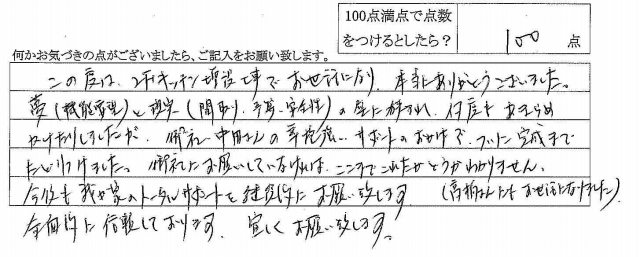 100点満点で点数
をつけるとしたら？ 100 点
何かお気づきの点がございましたら、ご記入をお願い致します。
この度は、2Fキッチン増設工事でお世話になり、本当にありがとうございました。
夢(機能希望)と現実(間取り、予算、安全性)の壁に阻まれ、何度もあきらめ
かけたりしましたが、御社 中田さんの辛抱強いサポートのおかげで、ついに完成まで
たどりつけました。御社にお願いしていなければ、ここまでこれたかどうかわかりません。
今後も我が家のトータルサポートを継続的にお願い致します (高橋さんにもお世話になりました)
全面的に信頼しております。宜しくお願い致します。